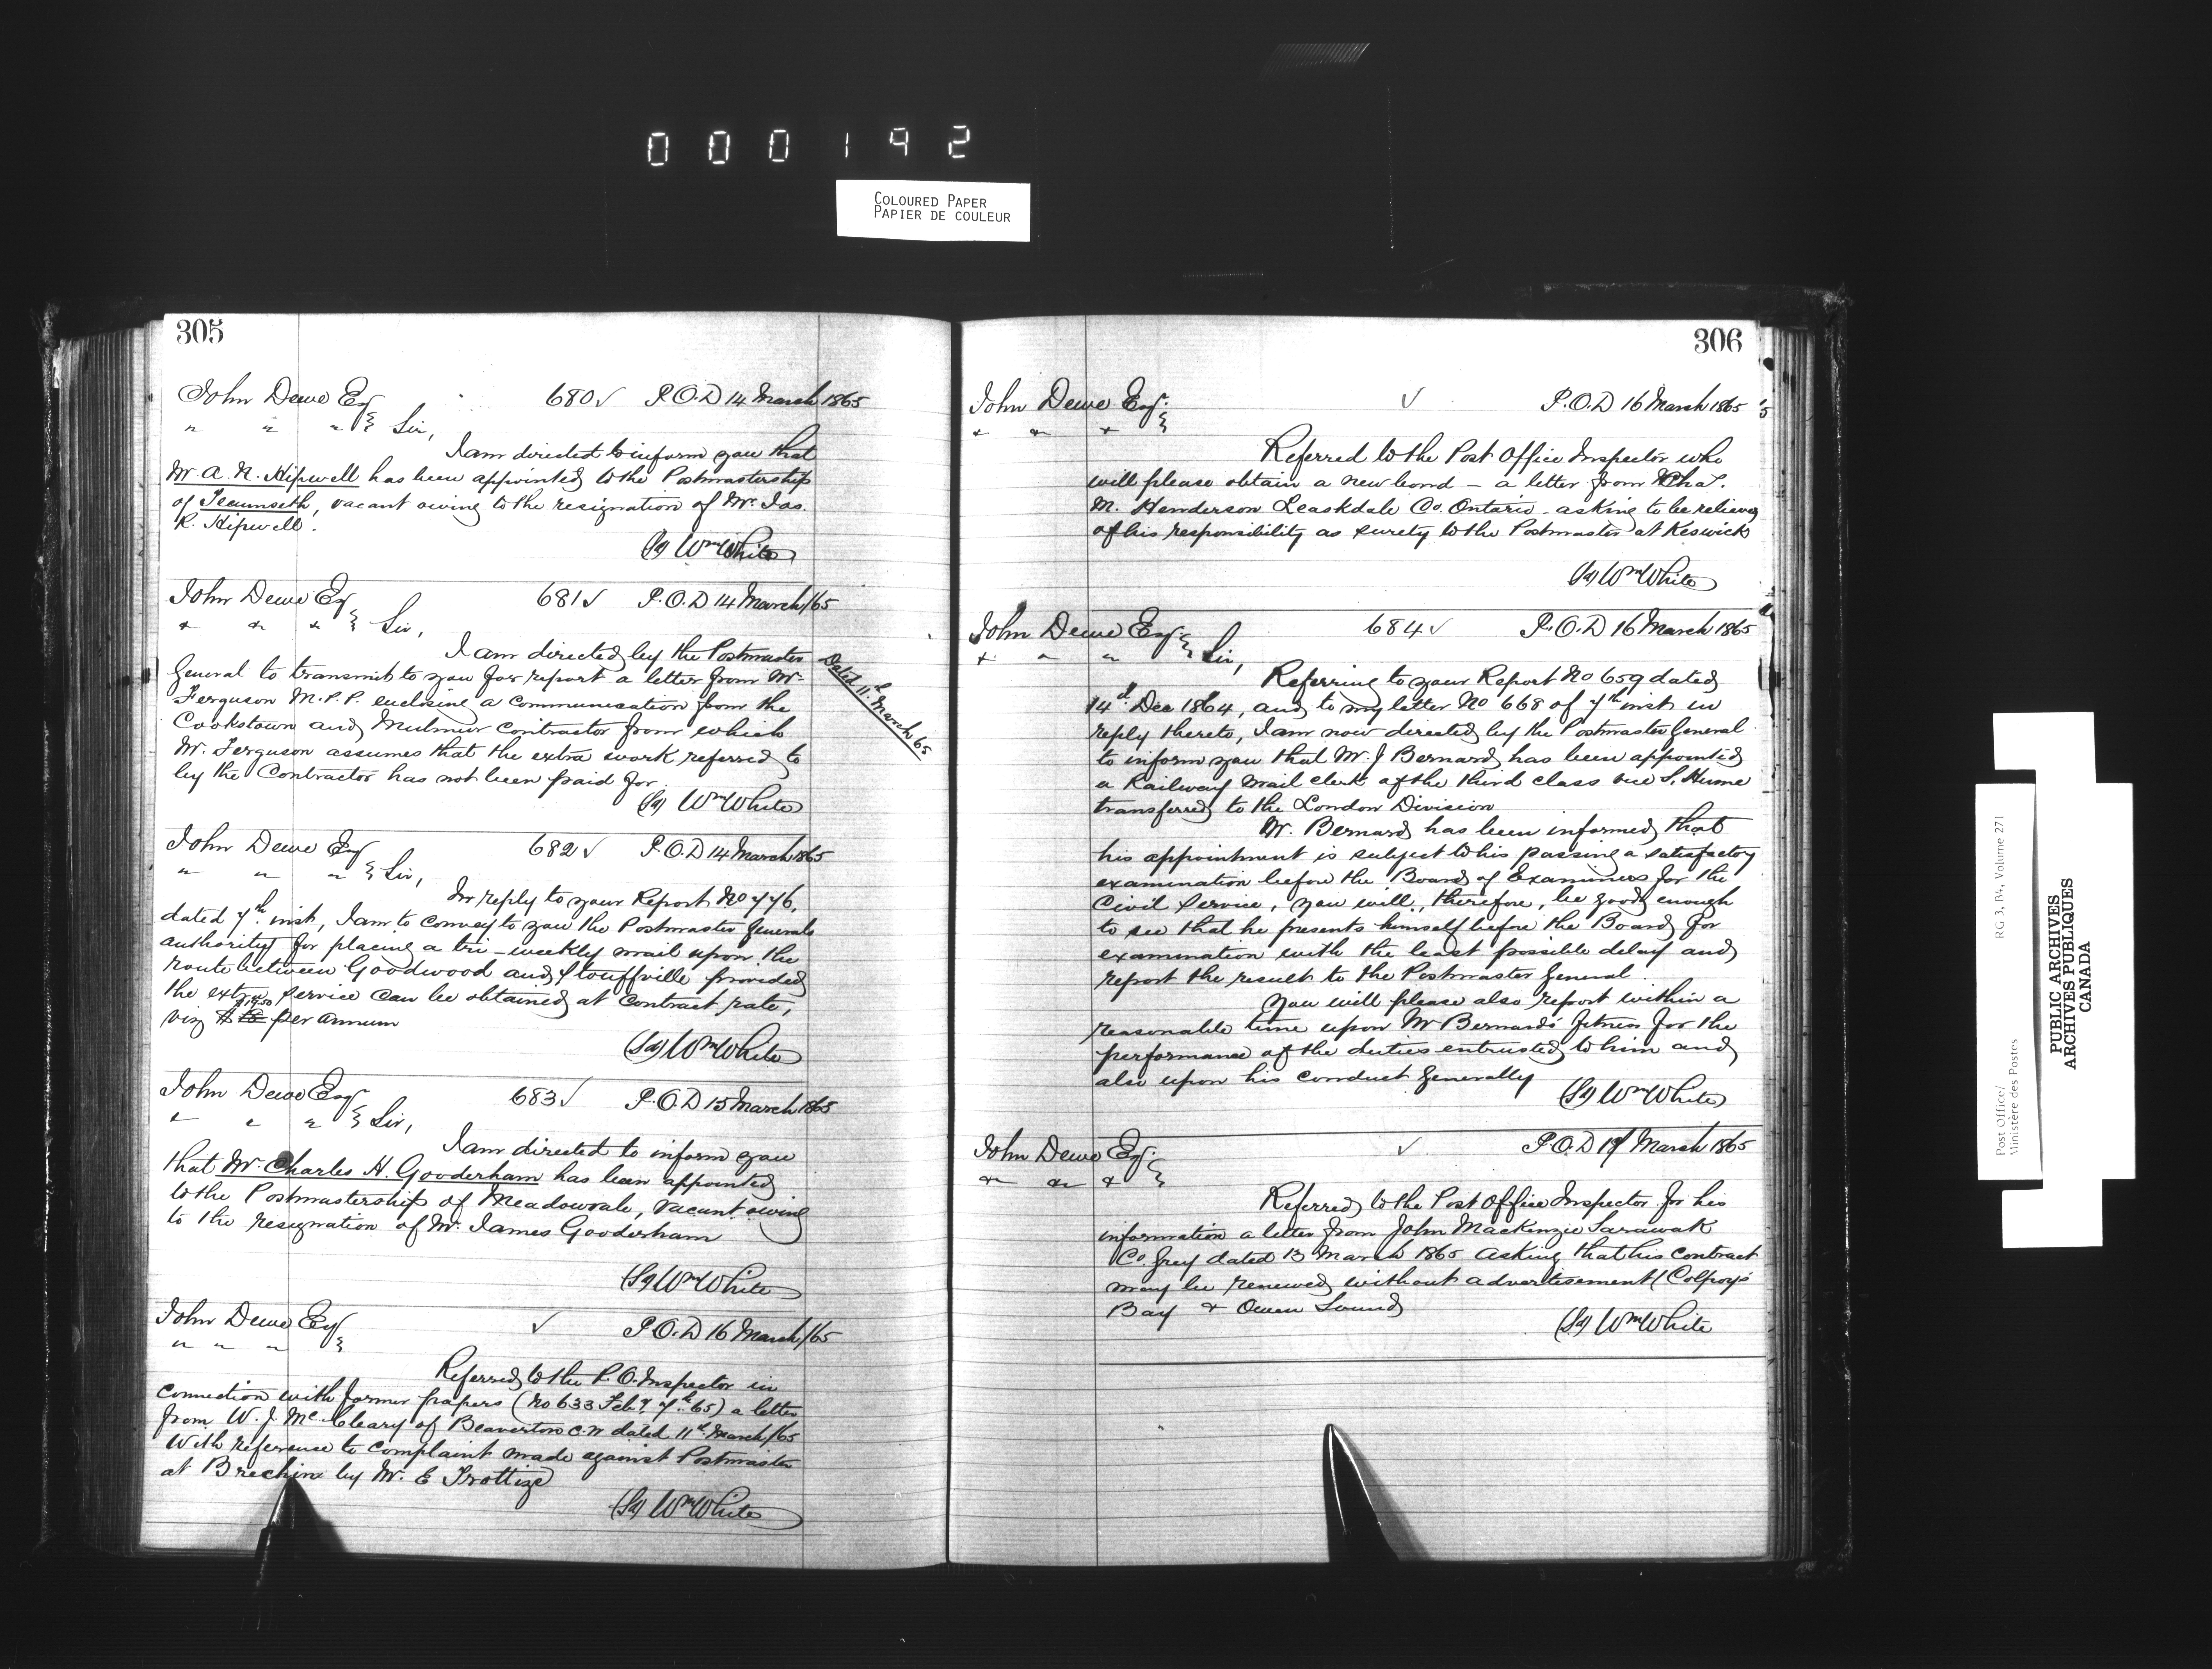 000192
COLOURED PAPER
PAPIER DE COULEUR
305
John Dewe Esq 680 ✓ P.O.D 14 March 1865
" " " } Sir,
I am directed to inform you that
Mr A. N. Hipwell has been appointed to the Postmastership
of Tecumseth, vacant owing to the resignation of Mr. Jas.
R. Hipwell.
(Sd) Wm White
John Dewe Esq 681 ✓ P.O.D 14 March/65
" " " } Sir,
I am directed by the Postmaster
General to transmit to you for report a letter from Mr
Dated 11th March 65
Ferguson M.P.P. enclosing a communication from the
Cookstown and Mulmur Contractor from which
Mr. Ferguson assumes that the extra work referred to
by the Contractor has not been paid for
(Sd) Wm White
John Dewe Esq 682 ✓ P.O.D 14 March 1865
" " " } Sir,
In reply to your Report No 776,
dated 7th inst, I am to convey to you the Postmaster Generals
authority for placing a tri-weekly mail upon the
route between Goodwood and Stouffville provided
the extra service can be obtained at contract rate,
$19.50
viz $ per annum
(Sd) Wm White
John Dewe Esq 683 ✓ P.O.D 15 March 1865
" " " } Sir,
I am directed to inform you
that Mr. Charles H. Gooderham has been appointed
to the Postmastership of Meadowvale, vacant owing
to the resignation of Mr. James Gooderham
(Sd) Wm White
John Dewe Esq ✓ P.O.D 16 March/65
" " " }
Referred to the P.O. Inspector in
connection with former papers (No 633 Feby 7th 65) a letter
from W. J. McCleary of Beaverton C.W dated 11th March/65
with reference to complaint made against Postmaster
at Brechin by Mr. E
(Sd) Wm White
306
John Dewe Esq. ✓ P.O.D 16 March 1865
" " " }
Referred to the Post Office Inspector who
will please obtain a new bond – a letter from Chas.
M. Henderson Leaskdale Co. Ontario – asking to be relieved
of his responsibility as surety to the Postmaster at Keswick
(Sd) Wm White
John Dewe Esq. 684 ✓ P.O.D 16 March 1865
" " " } Sir,
Referring to your Report No 659 dated
14th Dec 1864, and to my letter No 668 of 7th inst in
reply thereto, I am now directed by the Postmaster General
to inform you that Mr. J Bernard has been appointed
a Railway Mail Clerk of the third class vice S. Hume
transferred to the London Division
Mr. Bernard has been informed that
his appointment is subject to his passing a satisfactory
examination before the Board of Examiners for the
Civil Service, you will, therefore, be good enough
to see that he presents himself before the Board for
examination with the least possible delay and
report the result to the Postmaster General
You will please also report within a
reasonable time upon Mr Bernard's fitness for the
performance of the duties entrusted to him and
also upon his conduct generally
(Sd) Wm White
John Dewe Esq. ✓ P.O.D 17 March 1865
" " " }
Referred to the Post Office Inspector for his
information a letter from John Mackenzie Sarawak
Co. Grey dated 13 March 1865 asking that his contract
may be renewed without advertisement (Colpoy's
Bay & Owen Sound)
(Sd) Wm White
Post Office/ RG 3, B4, Volume 271
Ministère des Postes
PUBLIC ARCHIVES
ARCHIVES PUBLIQUES
CANADA